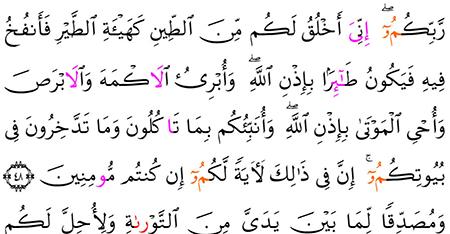 رَّبِّكُمُۥٓۖ إِنِّىَ أَخْلُقُ لَكُم مِّنَ ٱلطِّينِ كَهَيْـَٔةِ ٱلطَّيْرِ فَأَنفُخُ
فِيهِ فَيَكُونُ طَـٰٓئِرَۢا بِإِذْنِ ٱللَّهِۖ وَأُبْرِئُ ٱلَاكْمَهَ وَٱلَابْرَصَ
وَأُحْىِ ٱلْمَوْتَىٰ بِإِذْنِ ٱللَّهِۖ وَأُنَبِّئُكُم بِمَا تَاكُلُونَ وَمَا تَدَّخِرُونَ فِى
بُيُوتِكُمُۥٓۚ إِنَّ فِى ذَٰلِكَ لَأٓيَةً لَّكُمُۥٓ إِن كُنتُم مُّومِنِينَ ٤٨
وَمُصَدِّقًا لِّمَا بَيْنَ يَدَىَّ مِنَ ٱلتَّوْرَىٰةِ وَلِأُحِلَّ لَكُم